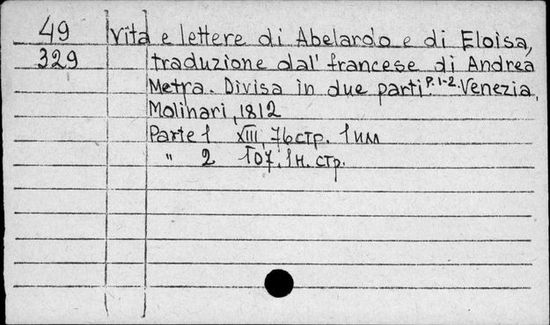 49 Vita e lettere di Abelardo e di Eloisa,
329 traduzione dal' francese di Andrea
Metra. Divisa in due parti P. 1-2. Venezia,
Molinari, 1812
Parte 1 XIII, 76 стр. 1 илл
" 2 107. 1 н. стр.